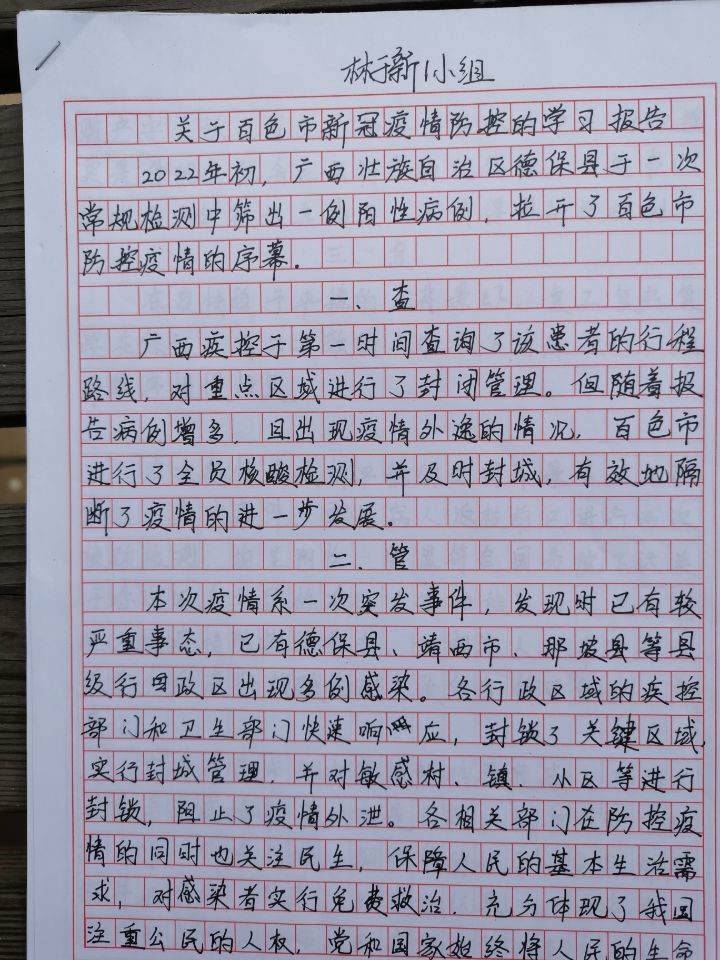 林于新小组
关于百色市新冠疫情防控的学习报告
2022年初，广西壮族自治区德保县于一次
常规检测中筛出一例阳性病例，拉开了百色市
防控疫情的序幕.
一、查
广西疾控于第一时间查询了该患者的行程
路线，对重点区域进行了封闭管理。但随着报
告病例增多，且出现疫情外逸的情况，百色市
进行了全员核酸检测，并及时封城，有效地隔
断了疫情的进一步发展.
二、管
本次疫情系一次突发事件，发现时已有较
严重事态，已有德保县、靖西市、那坡县等县
级行政区出现多例感染。各行政区域的疾控
部门和卫生部门快速响应，封锁了关键区域，
实行封城管理，并对敏感村、镇、小区等进行
封锁，阻止了疫情外泄。各相关部门在防控疫
情的同时也关注民生，保障人民的基本生活需
求，对感染者实行免费救治.充分体现了我国
注重公民的人权，党和国家始终将人民的生命